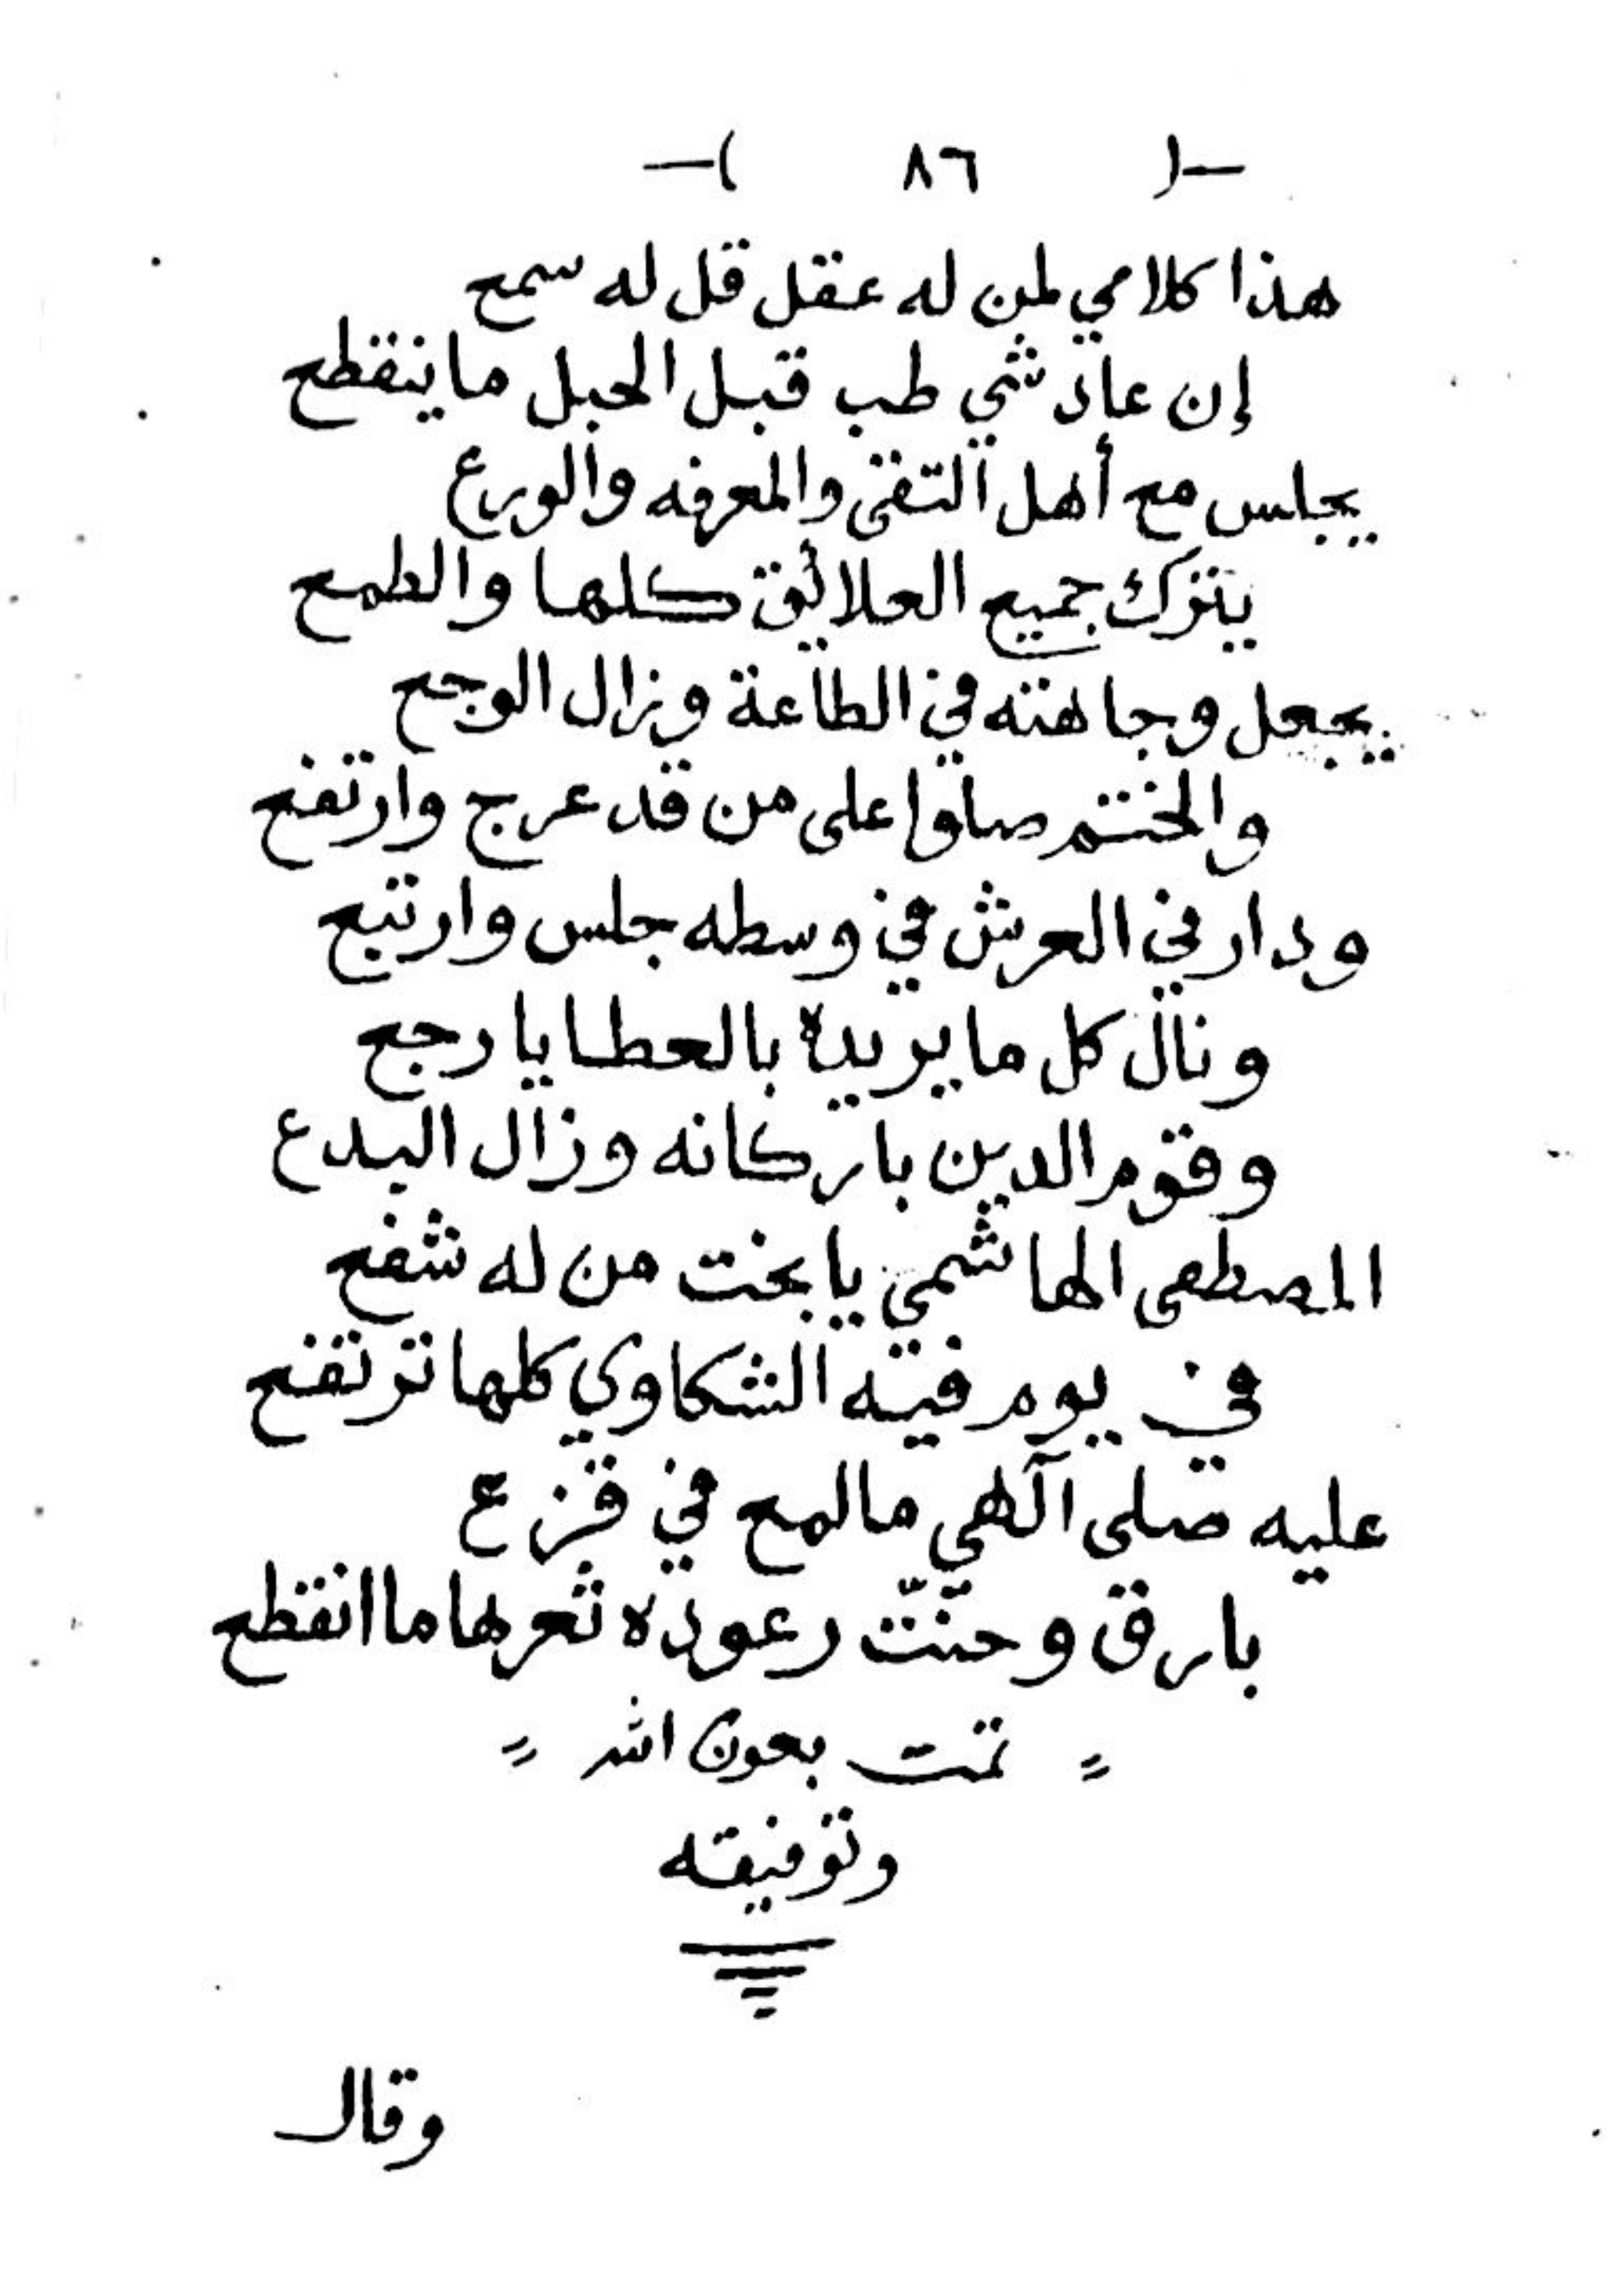 -( ٨٦ )-
هذا كلامي لمن له عقل قل له سمع
إن عاد شي طب قبل الحبل ما ينقطع
يجلس مع أهل التقى والمعرفه والورع
يترك جميع العلائق كلها والطمع
يجعل وجاهته في الطاعة وزال الوجع
والختم صلوا على من قد عرج وارتفع
ودار في العرش في وسطه جلس وارتبع
ونال كل ما يريده بالعطايا رجع
وقوم الدين باركانه وزال البدع
المصطفى الهاشمي يا بخت من له شفع
في يوم فيه الشكاوي كلها ترتفع
عليه صلى آلهي ما لمع في قزع
بارق وحنّت رعوده ما انقطع
= تمت بعون الله =
وتوفيقه
وقال